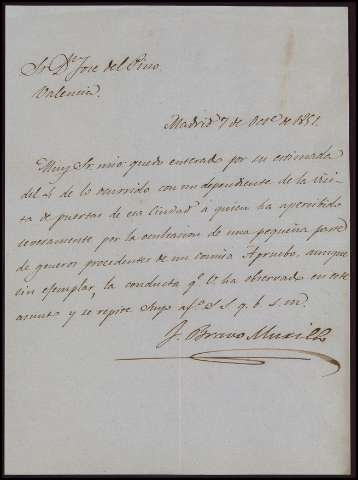 Sr. Dn. Jose del Pino.
Valencia.
Madrid 7 de Oct.e de 1851.
Muy Sr. mio: quedo enterado por su estimada
del 4 de lo ocurrido con un dependiente de la Visi-
ta de puertas de esa Ciudad á quien ha apercibido
severamente por la ocultacion de una pequeña parte
de generos procedentes de un comiso. Apruebo, aunque
sin ejemplar, la conducta q.e V. ha observado en este
asunto y se repite Suyo af.o S. S. q. b. s. m.
J. Bravo Murillo